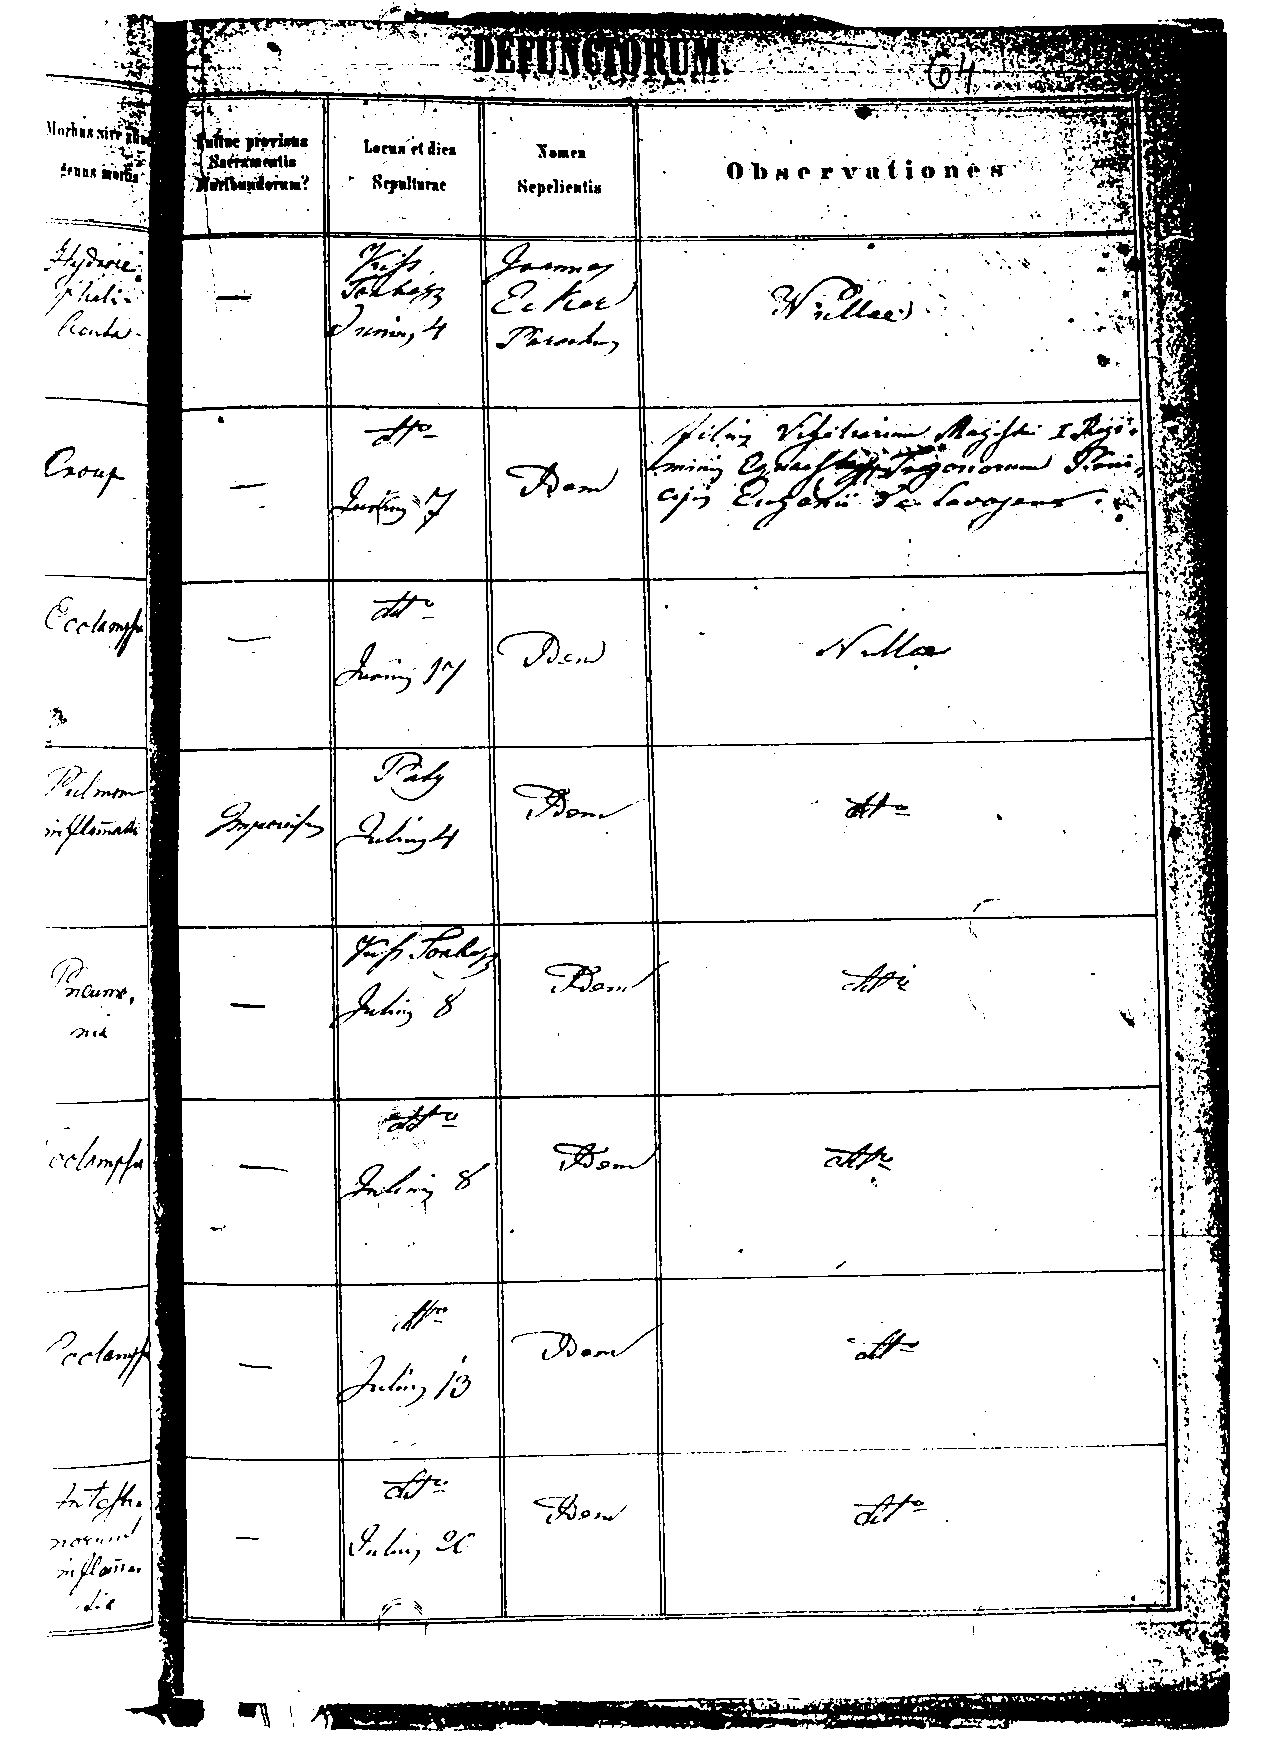 DEFUNCTORUM.
64
Morbus sive
genus mortis
Fuitne provisus
Sacramentis
Moribundorum?
Locus et dies
Sepulturae
Nomen
Sepelientis
Observationes
acuta
—
Kiss
Junius 4
Joannes
Ecker
Parochus
Nullae
Croup
—
dtto
Junius 7
Idem
filius Magistri I Regi-
minis
cipis Eugenii de
Ecclampsia
—
dtto
Junius 17
Idem
Nullae
Pulmon
inflam̄atio
Improvisus
Julius 4
Idem
dtto
Pneumo,
nia
—
Kiss
Julius 8
Idem
dtto
cclampsia
—
dtto
Julius 8
Idem
dtto
cclamps
—
dtto
Julius 13
Idem
dtto
Intesti-
norum
inflam̄a-
tio
—
dtto
Julius 20
Idem
dtto